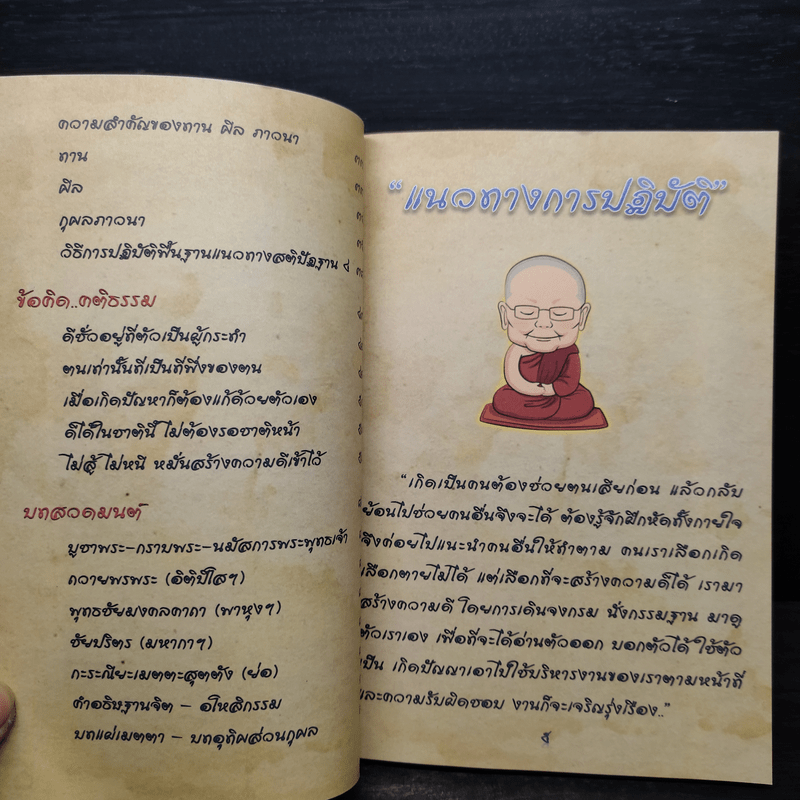 ความสำคัญของทาน ศีล ภาวนา
ทาน
ศีล
กุศลภาวนา
วิธีการปฏิบัติพื้นฐานแนวทางสติปัฏฐาน ๔
ข้อคิด..คติธรรม
ดีชั่วอยู่ที่ตัวเป็นผู้กระทำ
ตนเท่านั้นที่เป็นที่พึ่งของตน
เมื่อเกิดปัญหาก็ต้องแก้ด้วยตัวเอง
ดีได้ในชาตินี้ ไม่ต้องรอชาติหน้า
ไม่สู้ ไม่หนี หมั่นสร้างความดีเข้าไว้
บทสวดมนต์
บูชาพระ-กราบพระ-นมัสการพระพุทธเจ้า
ถวายพรพระ (อิติปิโสฯ)
พุทธชัยมงคลคาถา (พาหุงฯ)
ชัยปริตร (มหากาฯ)
กะระณียะเมตตะสุตตัง (ย่อ)
คำอธิษฐานจิต - อโหสิกรรม
บทแผ่เมตตา - บทอุทิศส่วนกุศล
“แนวทางการปฏิบัติ”
“เกิดเป็นคนต้องช่วยตนเสียก่อน แล้วกลับ
ย้อนไปช่วยคนอื่นจึงจะได้ ต้องรู้จักฝึกหัดทั้งกายใจ
จึงค่อยไปแนะนำคนอื่นให้ทำตาม คนเราเลือกเกิด
เลือกตายไม่ได้ แต่เลือกที่จะสร้างความดีได้ เรามา
สร้างความดี โดยการเดินจงกรม นั่งกรรมฐาน มาดู
ตัวเราเอง เพื่อที่จะได้อ่านตัวออก บอกตัวได้ ใช้ตัว
เป็น เกิดปัญญาเอาไปใช้บริหารงานของเราตามหน้าที่
และความรับผิดชอบ งานก็จะเจริญรุ่งเรือง..”